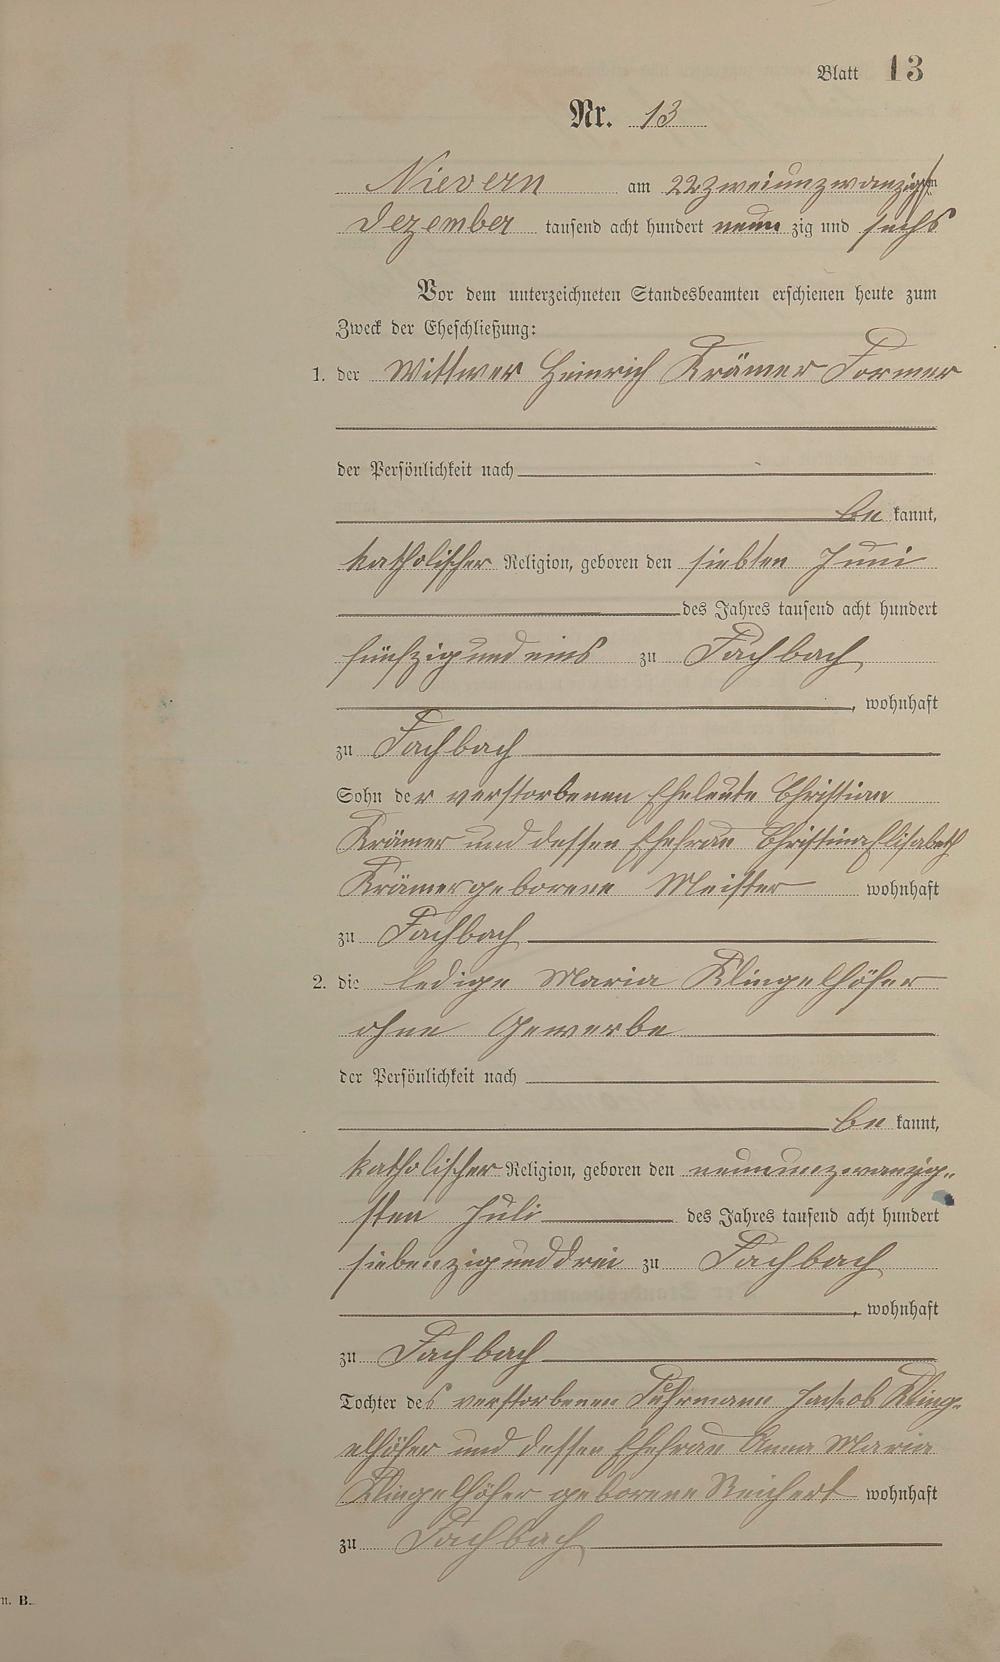 Blatt 13
Nr. 13
Nievern am 22 zweiunzwanzigsten
Dezember tausend acht hundert neun zig und sechs
Vor dem unterzeichneten Standesbeamten erschienen heute zum
Zweck der Eheschließung:
1. der Wittwer Heinrich Krämer Former
der Persönlichkeit nach
be kannt,
katholischer Religion, geboren den siebten Juni
des Jahres tausend acht hundert
fünfzig und eins zu Fachbach
, wohnhaft
zu Fachbach
Sohn der verstorbenen Eheleute Christian
Krämer und dessen Ehefrau Christina Elisabeth
Krämer geborene Meister wohnhaft
zu Fachbach
2. die ledige Maria Klingelhöfer
ohne Gewerbe
der Persönlichkeit nach
be kannt,
katholischer Religion, geboren den neunundzwanzig-
sten Juli des Jahres tausend acht hundert
siebenzig und drei zu Fachbach
, wohnhaft
zu Fachbach
Tochter des verstorbenen Fuhrmann Jackob Kling-
elhöfer und dessen Ehefrau Anna Maria
Klingelhöfer geborene Reichert wohnhaft
zu Fachbach
n. B.